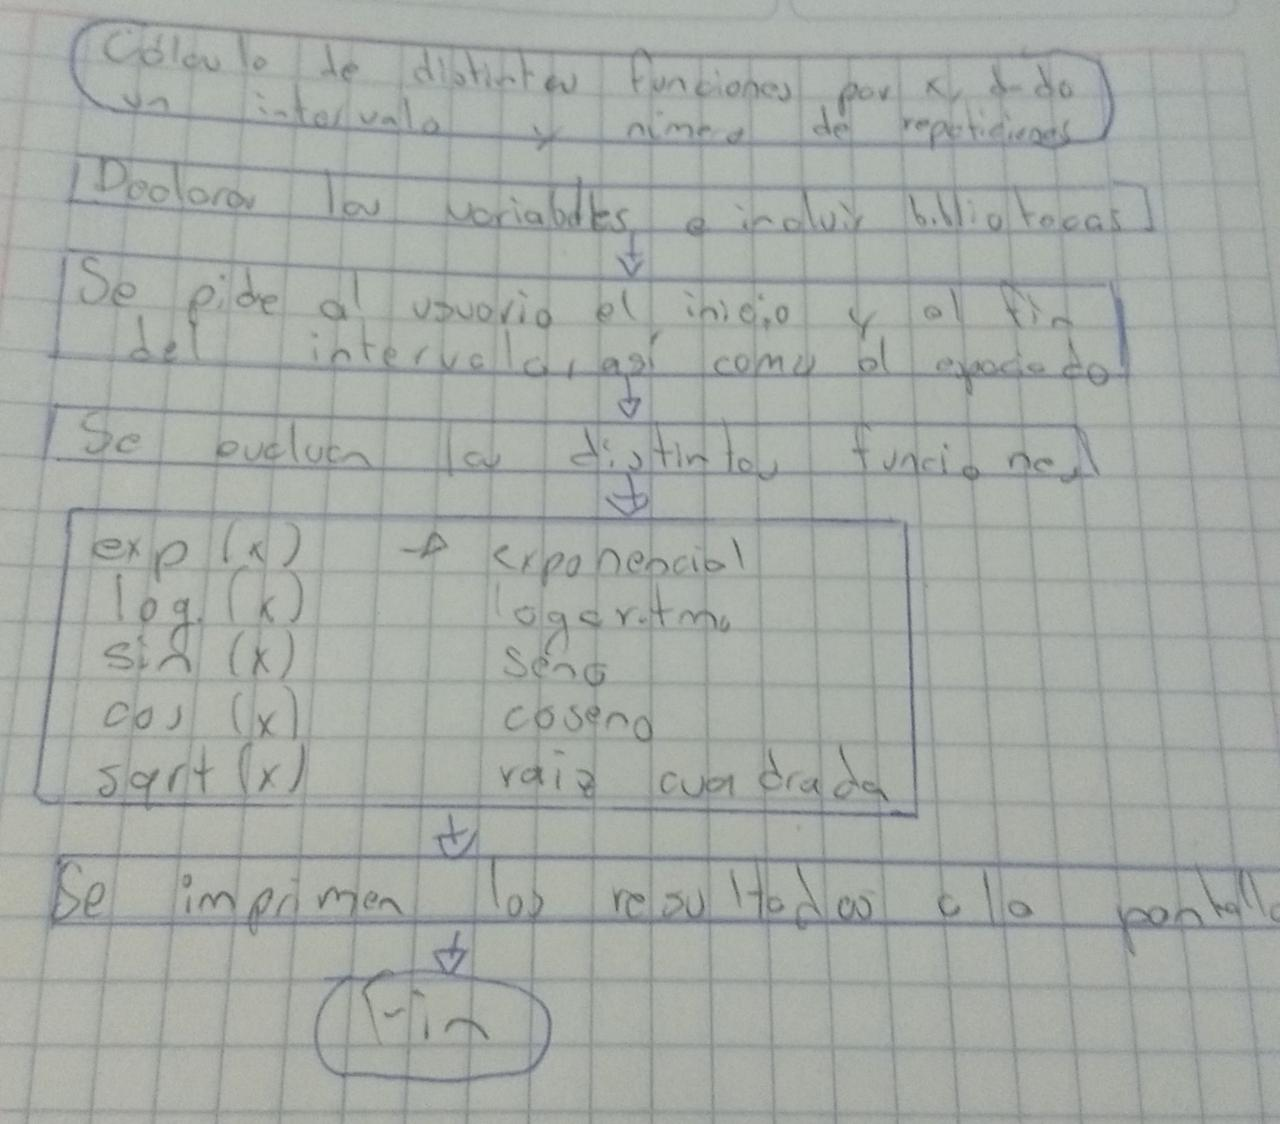 Cálculo de distintas funciones por x, dado
un intervalo y número de repeticiones
Declarar las variables e incluir bibliotecas
Se pide al usuario el inicio y el fin
del intervalo, así como el
Se evaluan las distintas funciones
exp (x) → exponencial
log (x) logaritmo
sin (x) seno
cos (x) coseno
sqrt (x) raiz cuadrada
Se imprimen los resultados a la pantalla
Fin